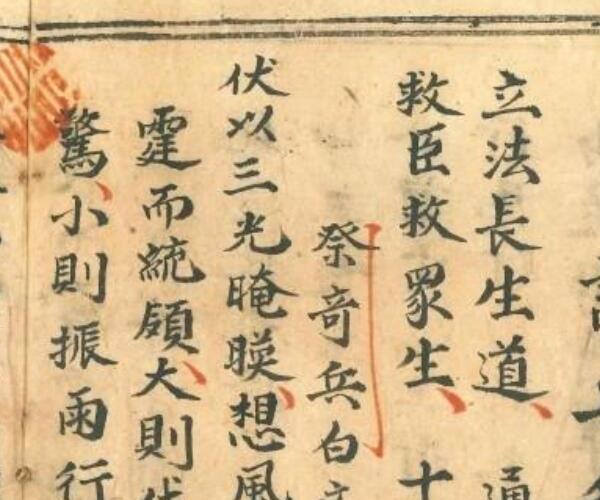 立法長生道
救臣救眾生 十
祭竒兵白
伏以三光晻暎想風
霆而統領大則
驚小則振雨行